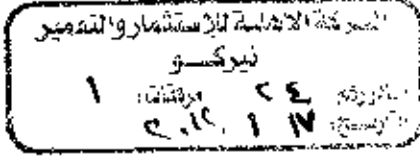 الشركة الاهلية للإستثمار والتعمير
نيركـــو
صادر رقم: ٢٤ مرفقات: ١
التاريخ: ١٧ ١ ٢٠١٢